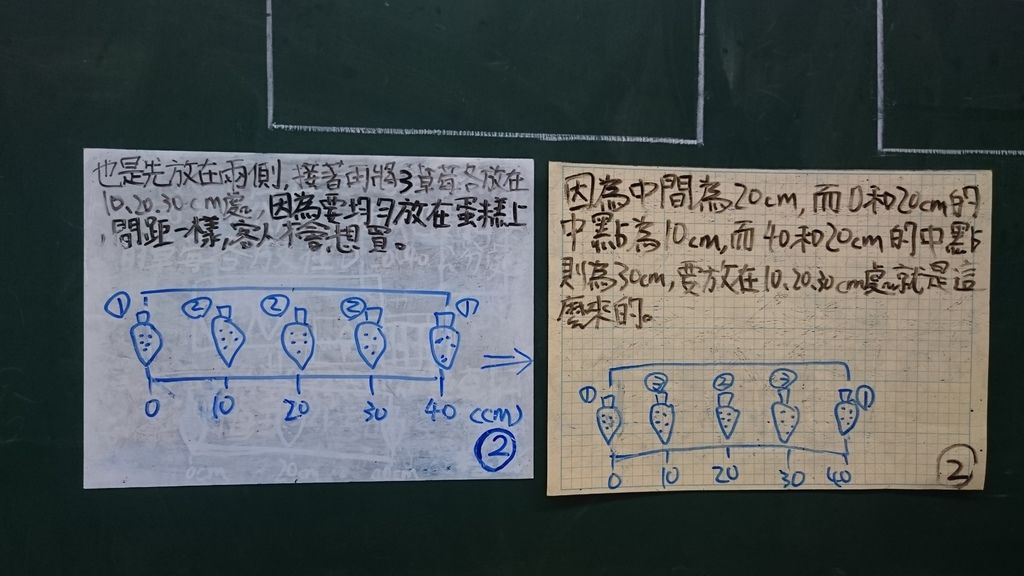 也是先放在兩側,接著再將3草莓各放在
10.20.30cm處,因為要均勻放在蛋糕上
,間距一樣,客人才會想買。
① ② ② ② ①
0 10 20 30 40 (cm)
②
因為中間為20cm,而0和20cm的
中點為10cm,而40和20cm的中點
則為30cm,要放在10.20.30cm處就是這
麼來的。
① ② ② ② ①
0 10 20 30 40
②